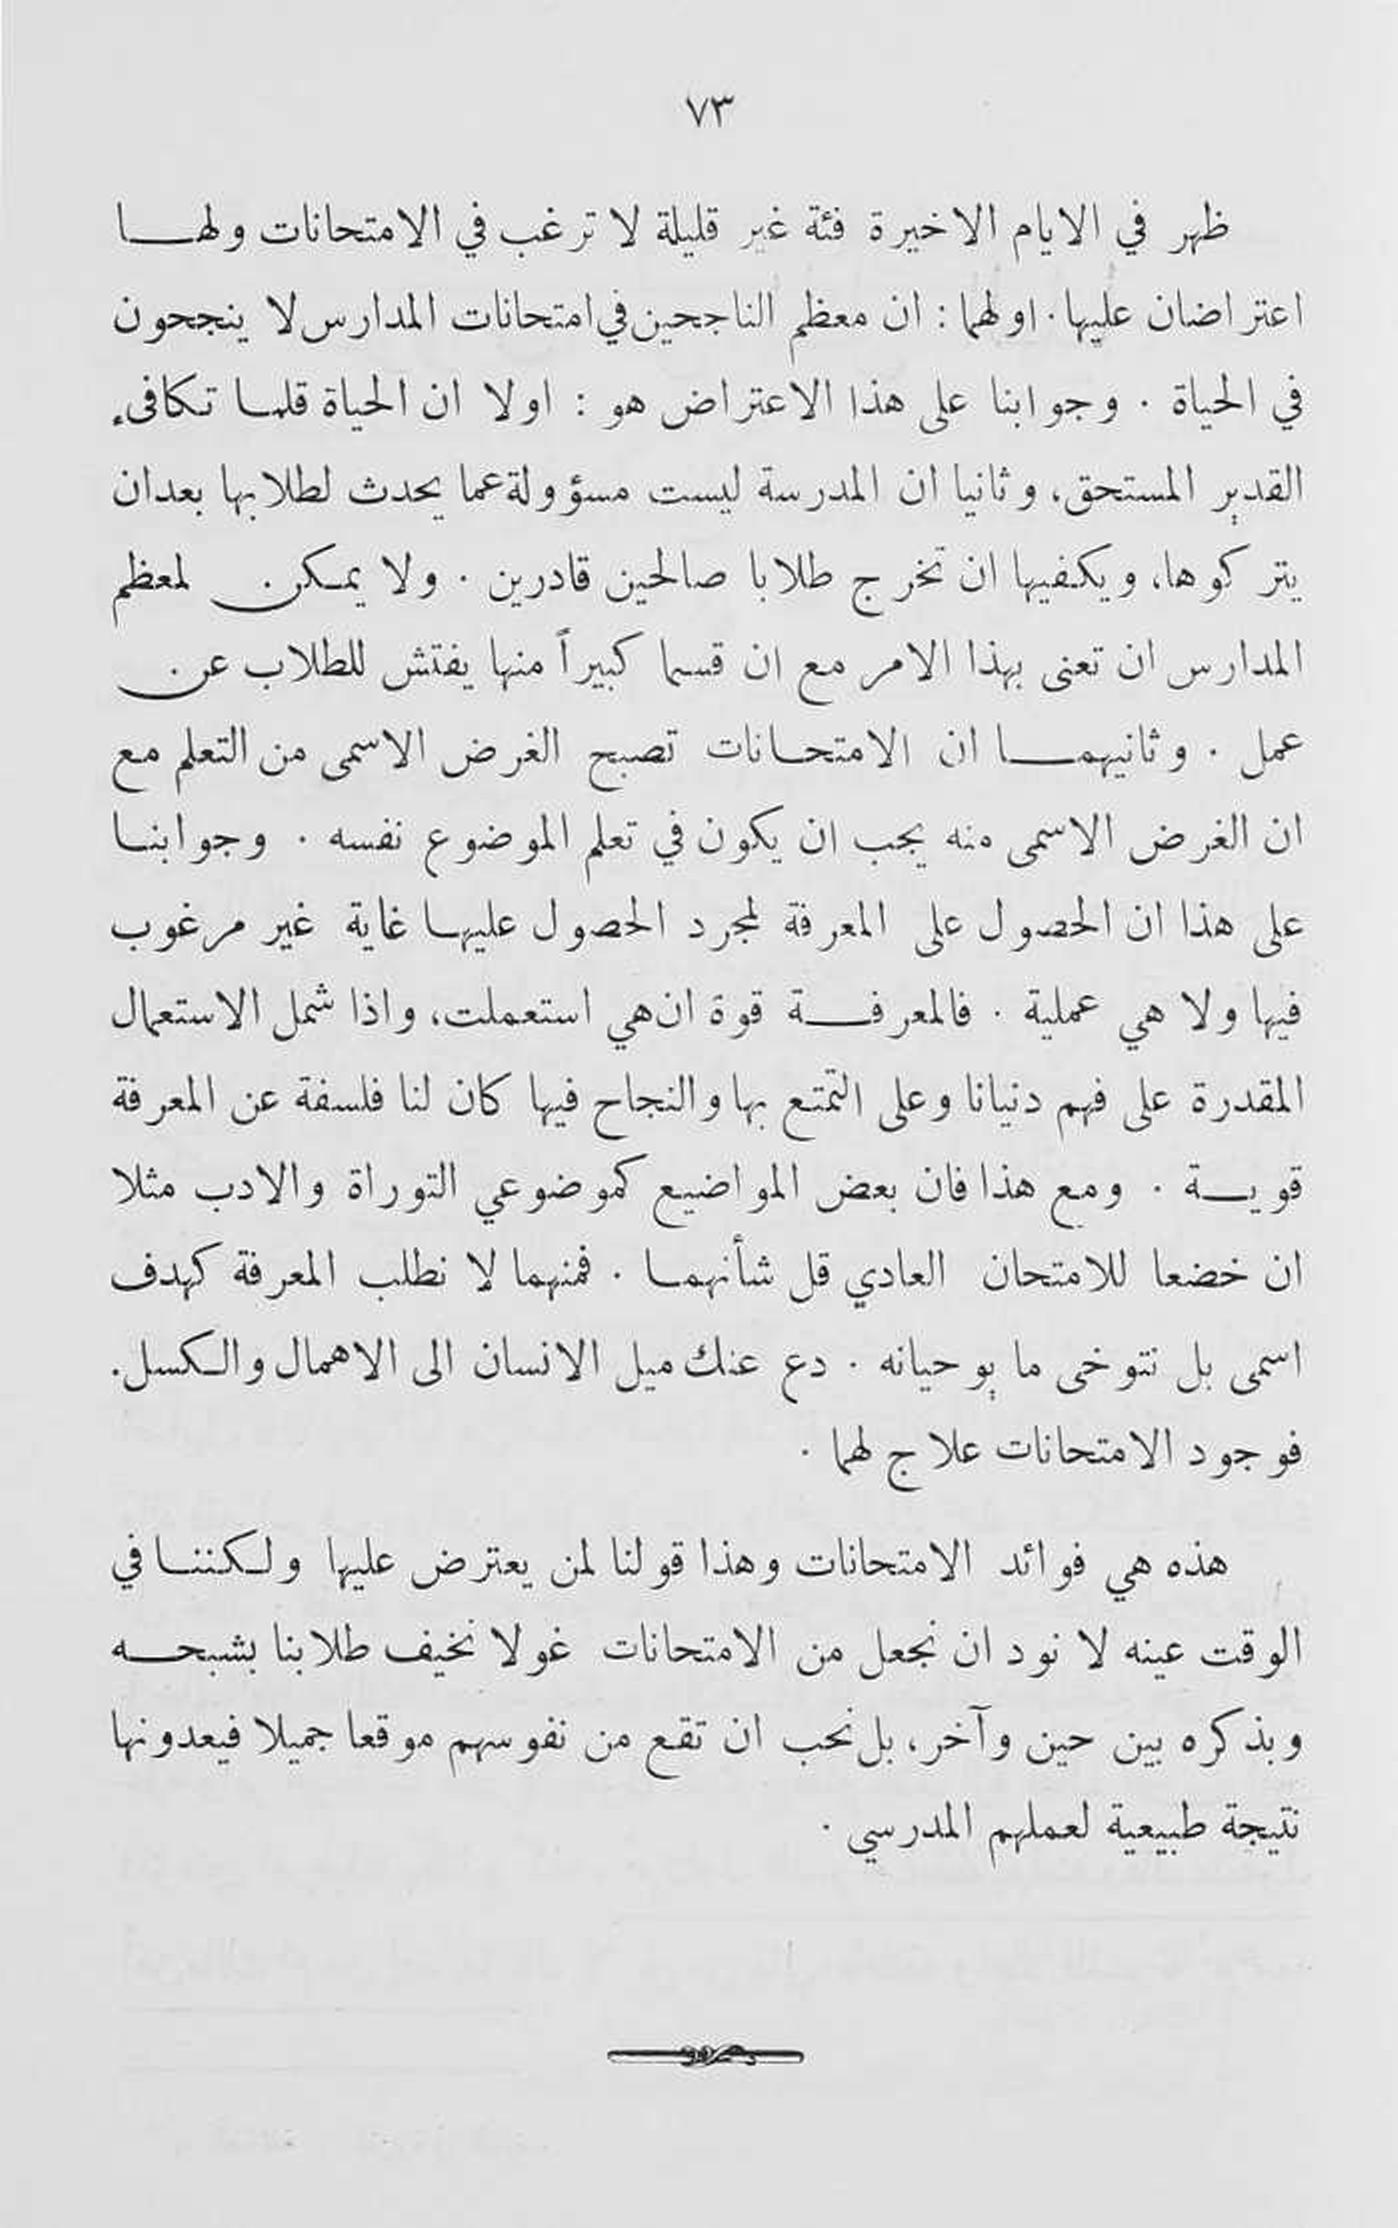 ٧٣
ظهر في الايام الاخيرة فئة غير قليلة لا ترغب في الامتحانات ولها
اعتراضان عليها . اولهما : ان معظم الناجحين في امتحانات المدارس لا ينجحون
في الحياة . وجوابنا على هذا الاعتراض هو : اولا ان الحياة قلما تكافىء
القدير المستحق، وثانيا ان المدرسة ليست مسؤولة عما يحدث لطلابها بعد ان
يتركوها، ويكفيها ان تخرج طلابا صالحين قادرين . ولا يمكن لمعظم
المدارس ان تعنى بهذا الامر مع ان قسما كبيراً منها يفتش للطلاب عن
عمل . وثانيهما ان الامتحانات تصبح الغرض الاسمى من التعلم مع
ان الغرض الاسمى منه يجب ان يكون في تعلم الموضوع نفسه . وجوابنا
على هذا ان الحصول على المعرفة لمجرد الحصول عليها غاية غير مرغوب
فيها ولا هي عملية . فالمعرفة قوة ان هي استعملت، واذا شمل الاستعمال
المقدرة على فهم دنيانا وعلى التمتع بها والنجاح فيها كان لنا فلسفة عن المعرفة
قوية . ومع هذا فان بعض المواضيع كموضوعي التوراة والادب مثلا
ان خضعا للامتحان العادي قل شأنهما . فمنهما لا نطلب المعرفة كهدف
اسمى بل نتوخى ما يوحيانه . دع عنك ميل الانسان الى الاهمال والكسل.
فوجود الامتحانات علاج لهما .
هذه هي فوائد الامتحانات وهذا قولنا لمن يعترض عليها ولكننا في
الوقت عينه لا نود ان نجعل من الامتحانات غولا نخيف طلابنا بشبحه
وبذكره بين حين وآخر، بل نحب ان تقع من نفوسهم موقعا جميلا فيعدونها
نتيجة طبيعية لعملهم المدرسي .